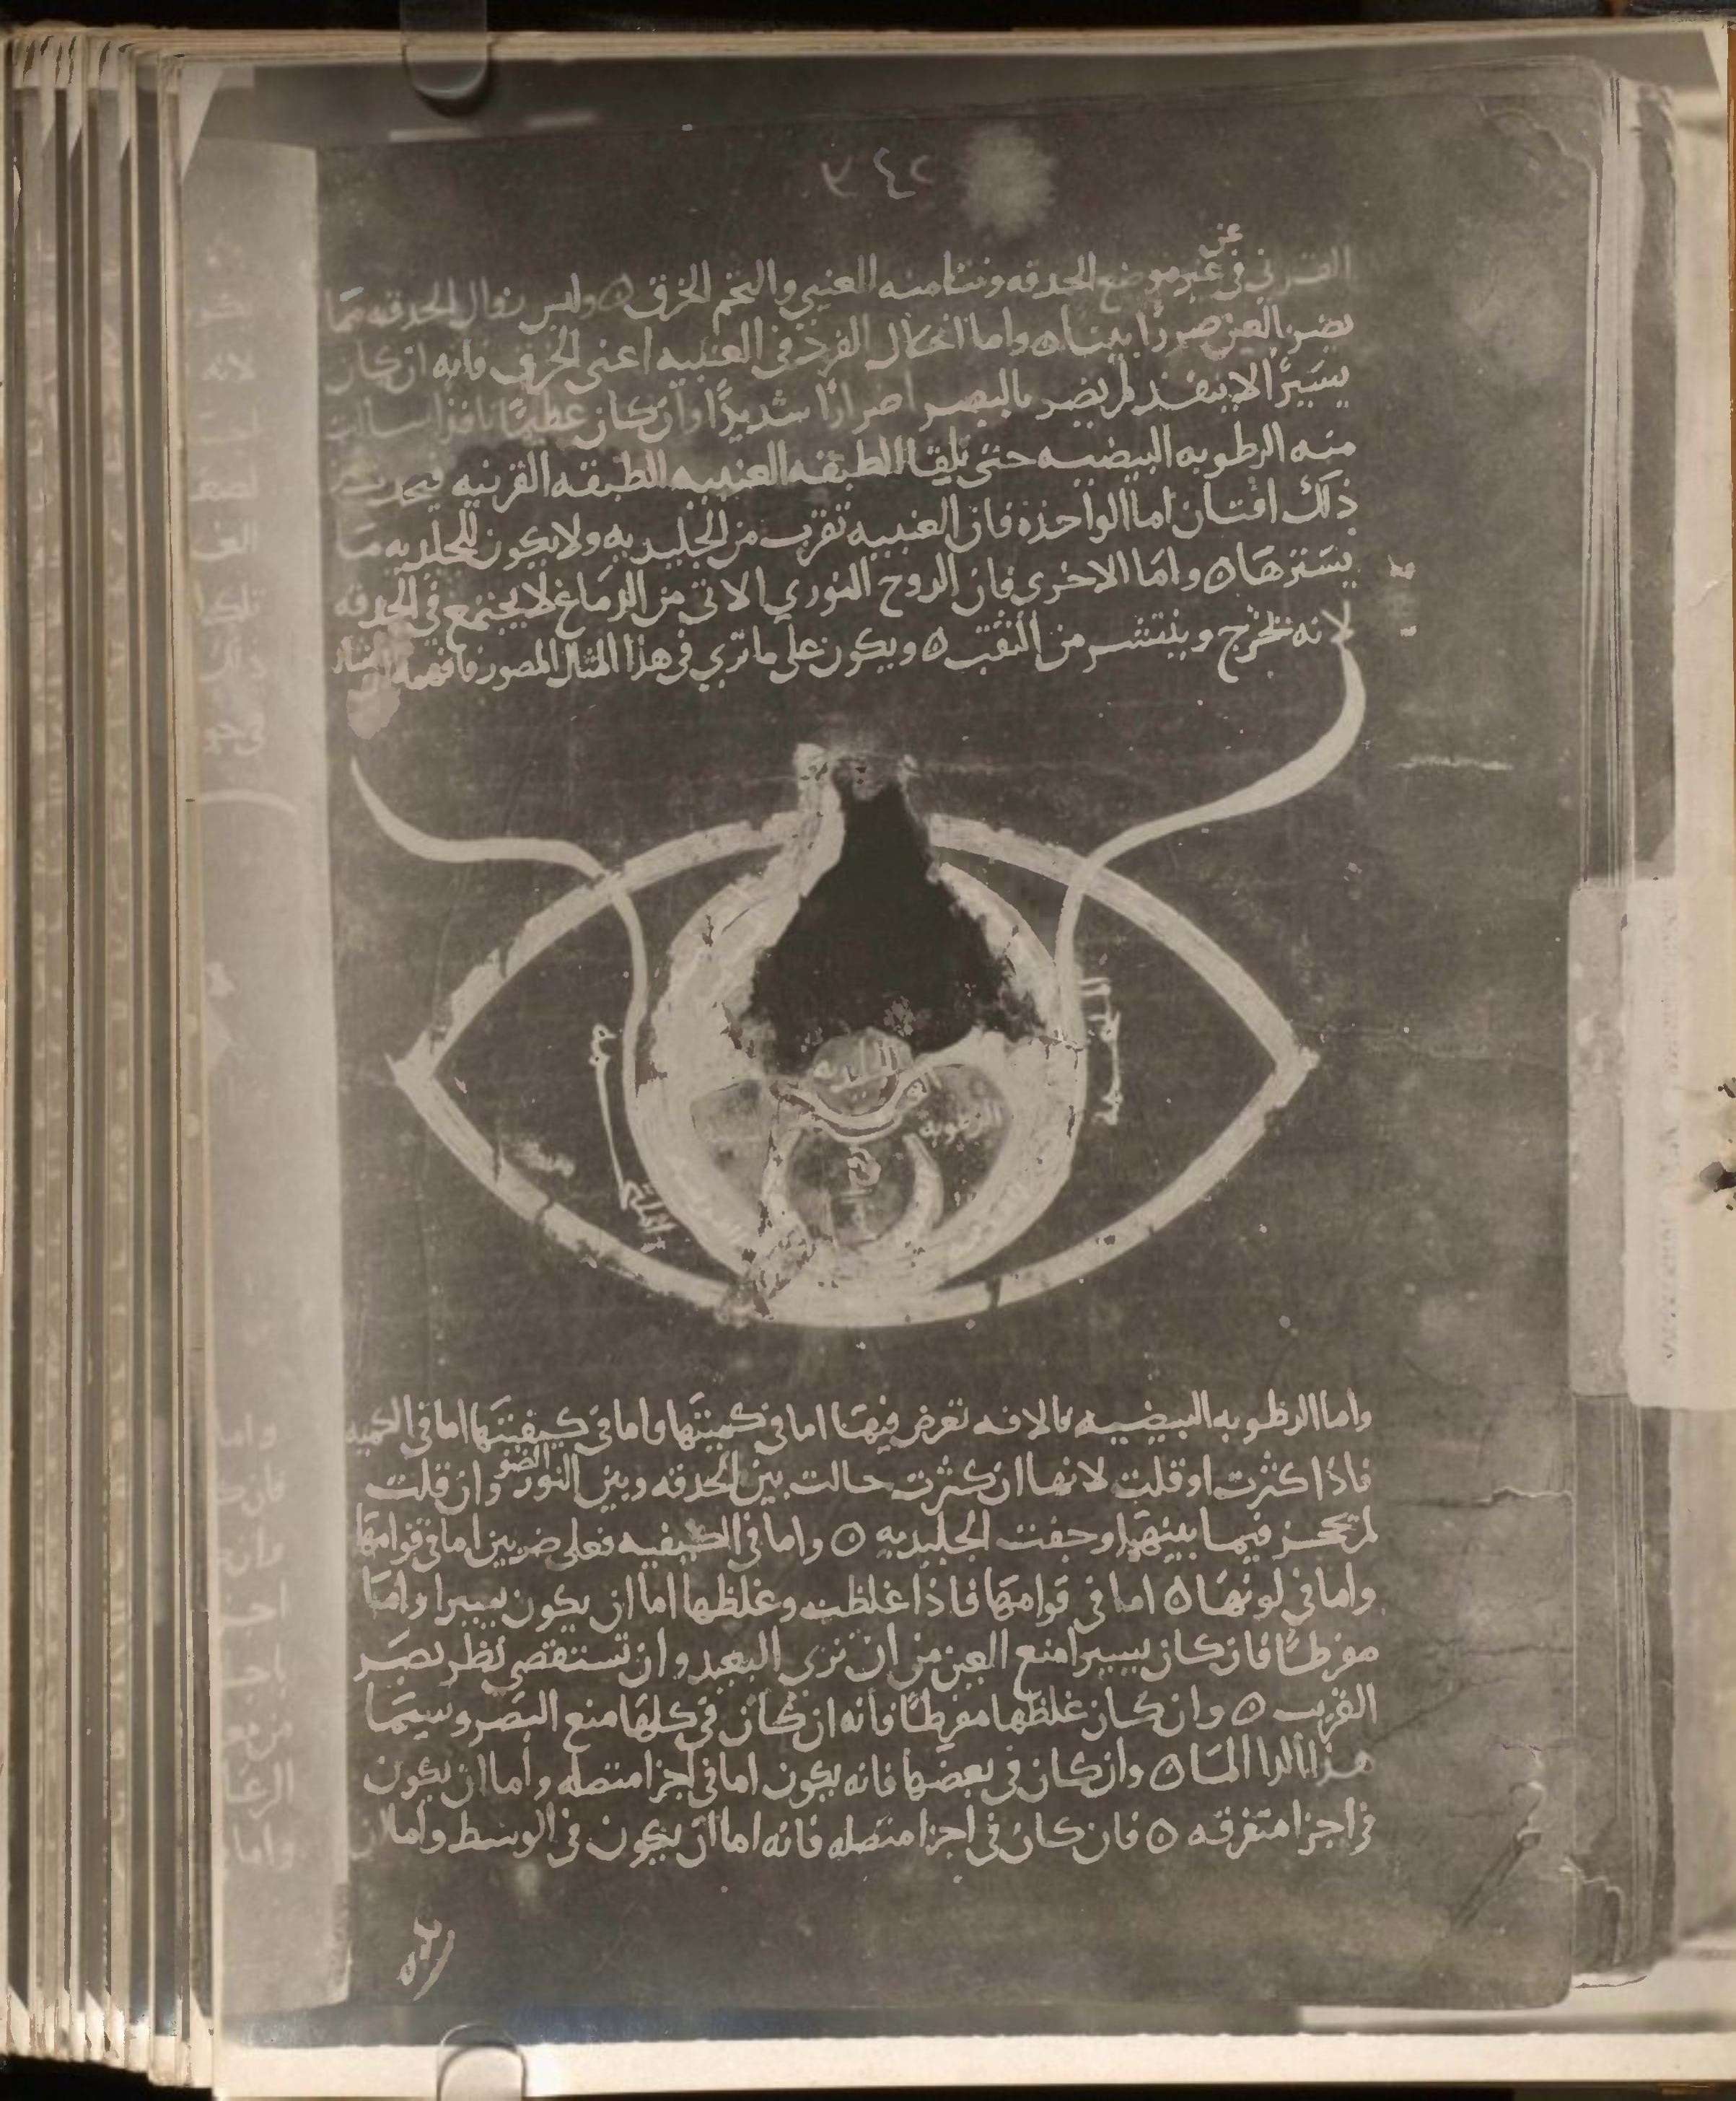 ٣٤٢
عن
القرني في غير موضع الحدقه ونتا منه العنبي والتحم الخرق ٥ وليس زوال الحدقه مما
يضر بالعين ضررًا بينا ٥ واما انحلال الفرد في العنبيه اعني الخرق فانه ان كان
يسيرًا لا ينفذ لم يضر بالبصر اضرارًا شديدًا وان كان عظيمًا نافذا سالت
منه الرطوبه البيضيه حتى تلقا الطبقه العنبيه الطبقه القرنيه فيحدث من
ذلك افتان اما الواحدة فان العنبيه تقرب من الجليديه ولا يكون للجليديه ما
يسترها ٥ واما الاخرى فان الروح النوري الاتى من الدماغ لا يجتمع في الحدقه
لانه يخرج وينتشر من الثقب ٥ ويكون على ما تري في هذا المثال المصور فافهمه
الرطوبه
الملتحمه
واما الرطوبه البيضيه فالافه تعرض فيها اما في كميتها واما في كيفيتها اما في الكميه
فاذا كثرت او قلت لانها ان كثرت حالت بين الحدقه وبين النور الضو وان قلت
لم تحجز فيما بينهما وجفت الجليديه ٥ واما في الكيفيه فعلى ضربين اما في قوامها
واما في لونها ٥ اما في قوامها فاذا غلظت وغلظها اما ان يكون يسيرا واما
مفرطًا فان كان يسيرا منع العين من ان ترى البعيد وان تستقصي نظر بصر
القريب ٥ وان كان غلظها مفرطًا فانه ان كان في كلها منع البصر وسيما
هذا الدا الما ٥ وان كان في بعضها فانه يكون اما في اجزا متصله واما ان يكون
في اجزا متفرقه ٥ فان كان في اجزا متصله فانه اما ان يكون في الوسط واما ان